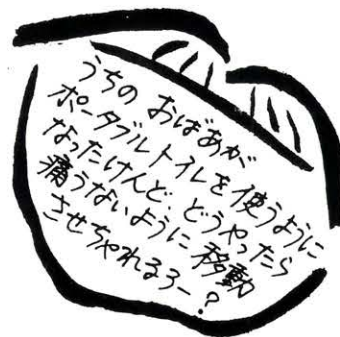 うちの おばあが
ポータブルトイレを使うように
なったけんど、どうやったら
痛うないように移動
させちゃれるろー？